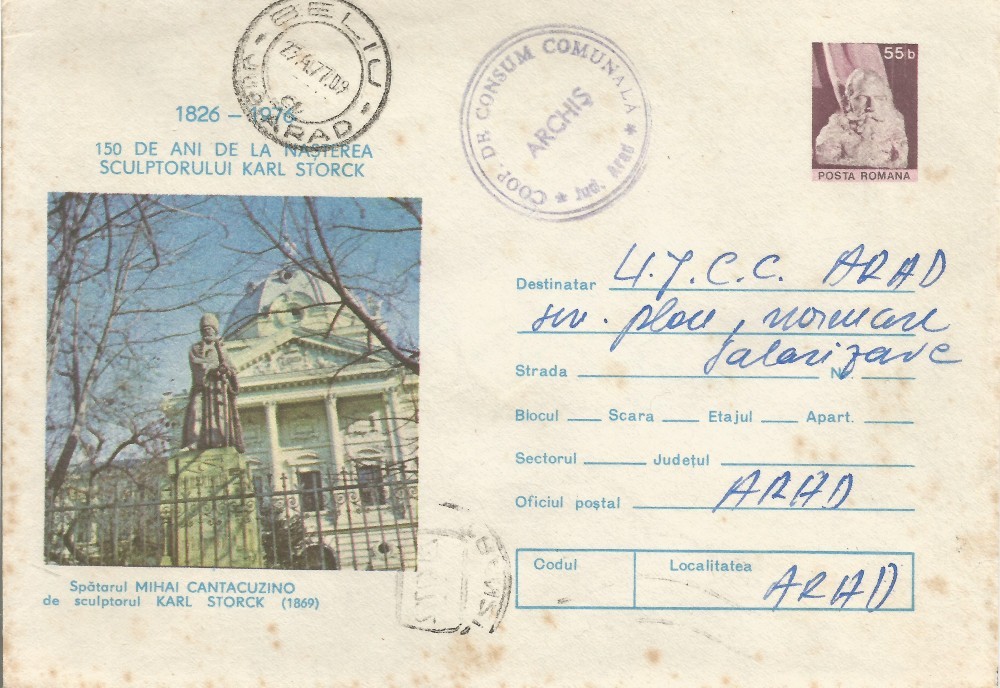 BELIU
27.4.77.09
ARAD
COOP. DE CONSUM COMUNALĂ
ARCHIȘ
* Jud. Arad *
55 b
POSTA ROMANA
1826 – 1976
150 DE ANI DE LA NAȘTEREA
SCULPTORULUI KARL STORCK
Spătarul MIHAI CANTACUZINO
de sculptorul KARL STORCK (1869)
Destinatar U.J.C.C. ARAD
serv. plan, normare
salarizare
Strada Nr.
Blocul Scara Etajul Apart.
Sectorul Județul
Oficiul poștal ARAD
Codul
Localitatea
ARAD